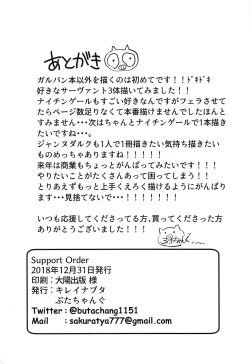 あとがき
ガルパン本以外を描くのは初めてです！！ﾄﾞｷﾄﾞｷ
好きなサーヴァント3体描いてみました！！
ナイチンゲールもすごい好きなんですがフェラさせて
たらページ数足りなくて本番描けませんでしたほんと
すみません・・・次はちゃんとナイチンゲールで1本描き
たいですね・・・。
ジャンヌダルクも1人で1冊描きたい気持ち描きたい
ものめっちゃありますね！！！！！
来年は商業もちょっとがんばってみたいです！！！
やりたいことがたくさんあって困ってしまう！！
とりあえずもっと上手くえろく描けるようにがんばり
ます・・・見捨てないで・・・！！！！！！！！
いつも応援してくださってる方、買ってくださった方
ありがとうございました！！！
Support Order
2018年12月31日発行
印刷：大陽出版 様
発行：キレイナブタ
ぶたちゃんぐ
Twitter：@butachang1151
Mail ：sakuratya777@gmail.com